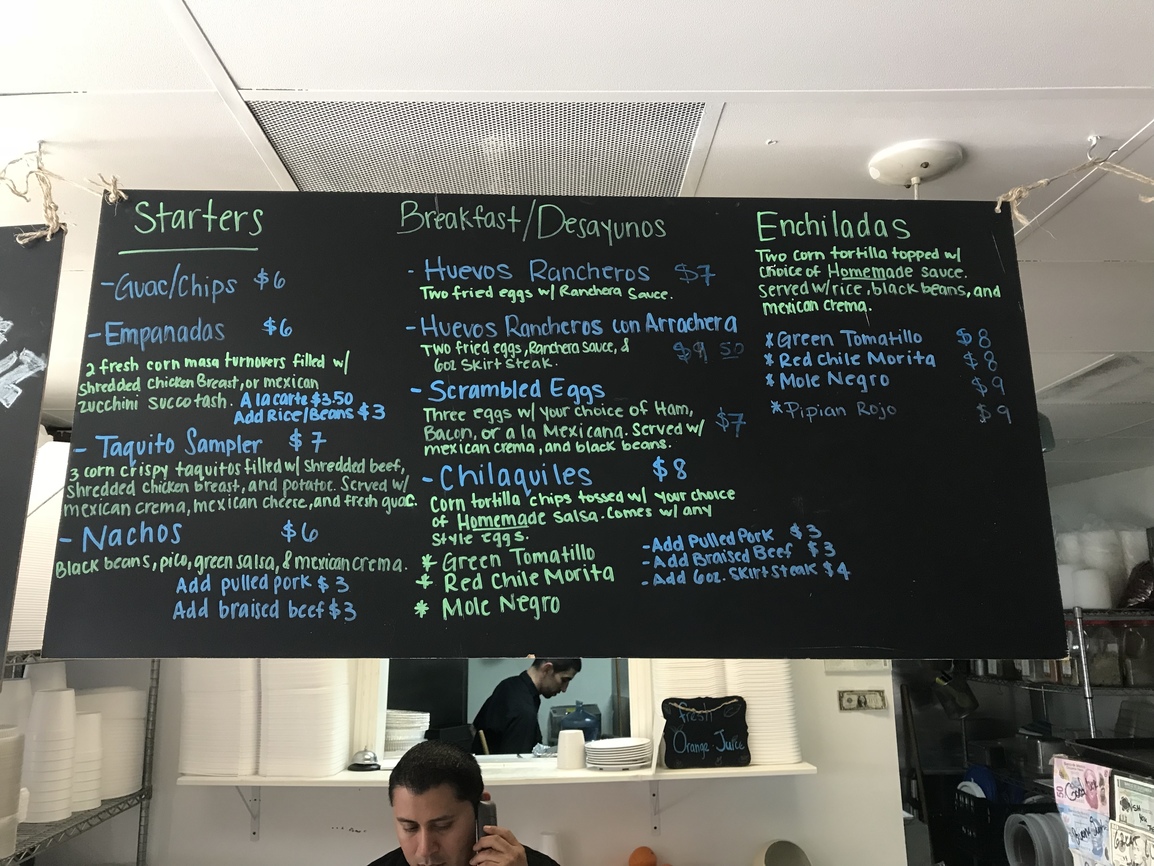 Starters
-Guac/Chips $6
-Empanadas $6
2 fresh corn masa turnovers filled w/
shredded chicken Breast, or mexican
zucchini succotash. A la carte $3.50
Add Rice/Beans $3
-Taquito Sampler $7
3 corn crispy taquitos filled w/ shredded beef,
shredded chicken breast, and potatoe. Served w/
mexican crema, mexican cheese, and fresh guac.
-Nachos $6
Black beans, pico, green salsa, & mexican crema.
Add pulled pork $3
Add braised beef $3
Breakfast/Desayunos
-Huevos Rancheros $7
Two fried eggs w/ Ranchera Sauce.
-Huevos Rancheros con Arrachera
Two fried eggs, Ranchera Sauce, & $9 50
6oz Skirt Steak.
-Scrambled Eggs
Three eggs w/ your choice of Ham,
Bacon, or a la Mexicana. Served w/ $7
mexican crema, and black beans.
-Chilaquiles $8
Corn tortilla chips tossed w/ your choice
of Homemade salsa. Comes w/ any
style eggs.
* Green Tomatillo
* Red Chile Morita
* Mole Negro
-Add Pulled Pork $3
-Add Braised Beef $3
-Add 6oz. Skirt Steak $4
Enchiladas
Two corn tortilla topped w/
choice of Homemade sauce.
served w/rice, black beans, and
mexican crema.
*Green Tomatillo $8
*Red Chile Morita $8
*Mole Negro $9
*Pipian Rojo $9
fresh
Orange Juice
50